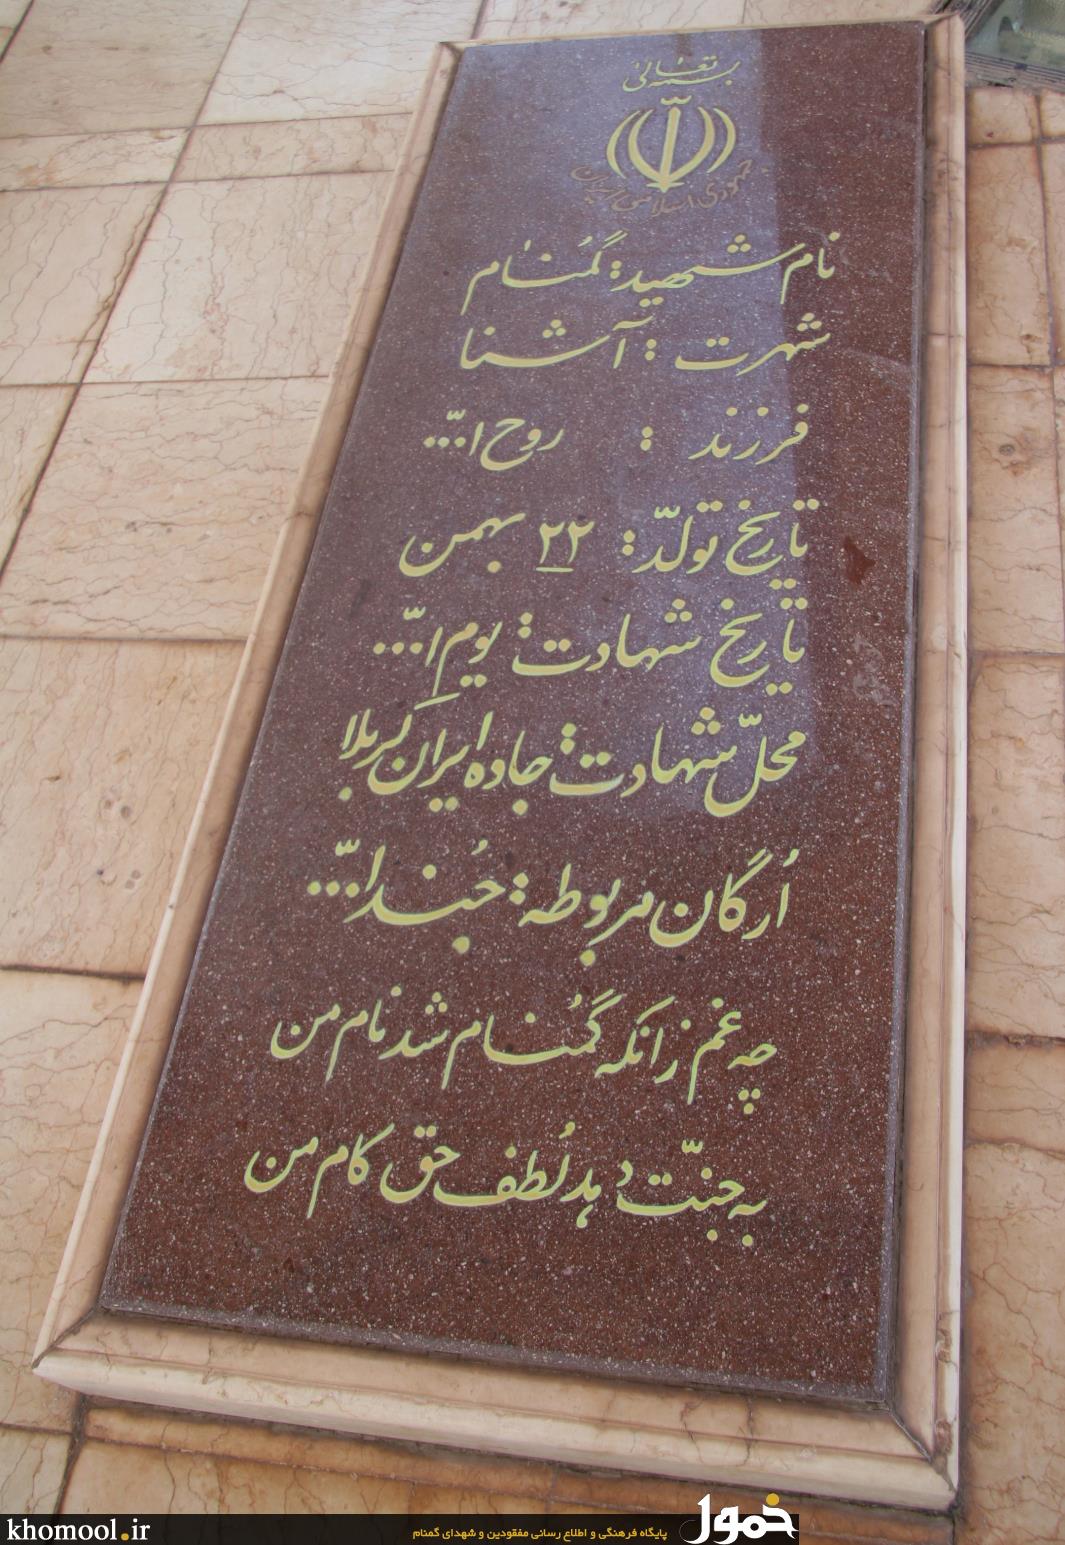 بسمه تعالی
جمهوری اسلامی ایران
نام شهید: گُمنام
شهرت: آشنا
فرزند: روح ا...
تاریخ تولّد: ۲۲ بهمن
تاریخ شهادت: یوم ا...
محلّ شهادت: جاده ایران کربلا
اُرگان مربوطه: جُندا...
چه غم زانکه گُمنام شد نام من
به جنّت دهد لُطف حق کام من
khomool.ir
پایگاه فرهنگی و اطلاع رسانی مفقودین و شهدای گمنام
خمول